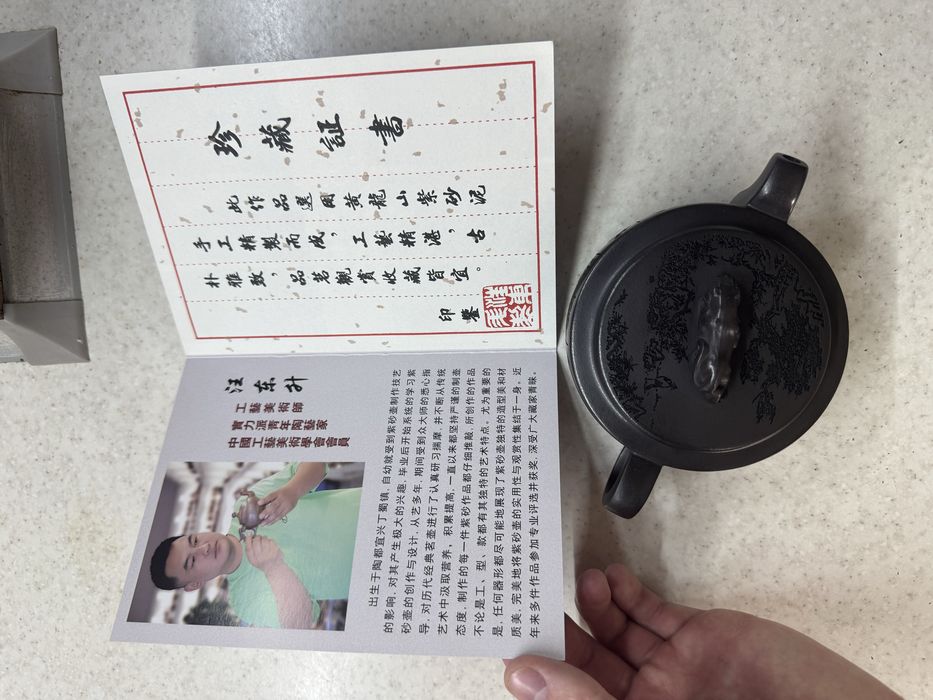 珍藏証書
此作品選用黃龍山紫砂泥
手工精製而成，工藝精湛，古
朴雅致，品茗觀賞收藏皆宜。
印鑒
汪东升
工藝美術師
實力派青年陶藝家
中國工藝美術學會會員
出生于陶都宜兴丁蜀镇，自幼就受到紫砂壶制作技艺
的影响，对其产生极大的兴趣，毕业后开始系统的学习紫
砂壶的创作与设计，从艺多年，期间受到众大师的悉心指
导，对历代经典茗壶进行了认真研习揣摩，并不断从传统
艺术中汲取营养，积累提高，一直以来都坚持严谨的制壶
态度，制作的每一件紫砂作品都仔细推敲，所创作的作品
不论是工、型、款都有其独特的艺术特点。尤为重要的
是，任何器形都尽可能地展现了紫砂壶独特的造型美和材
质美，完美地将紫砂壶的实用性与观赏性集结于一身。近
年来多件作品参加专业评选并获奖，深受广大藏家青睐。